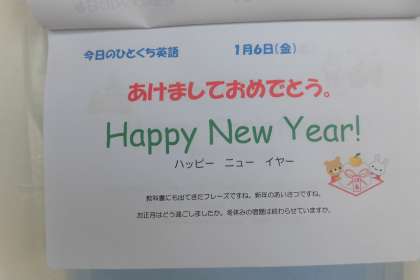 今日のひとくち英語　1月6日(金)
あけましておめでとう。
Happy New Year!
ハッピー　ニュー　イヤー
教科書にも出てきたフレーズですね。新年のあいさつですね。
お正月はどう過ごしましたか。冬休みの宿題は終わらせていますか。